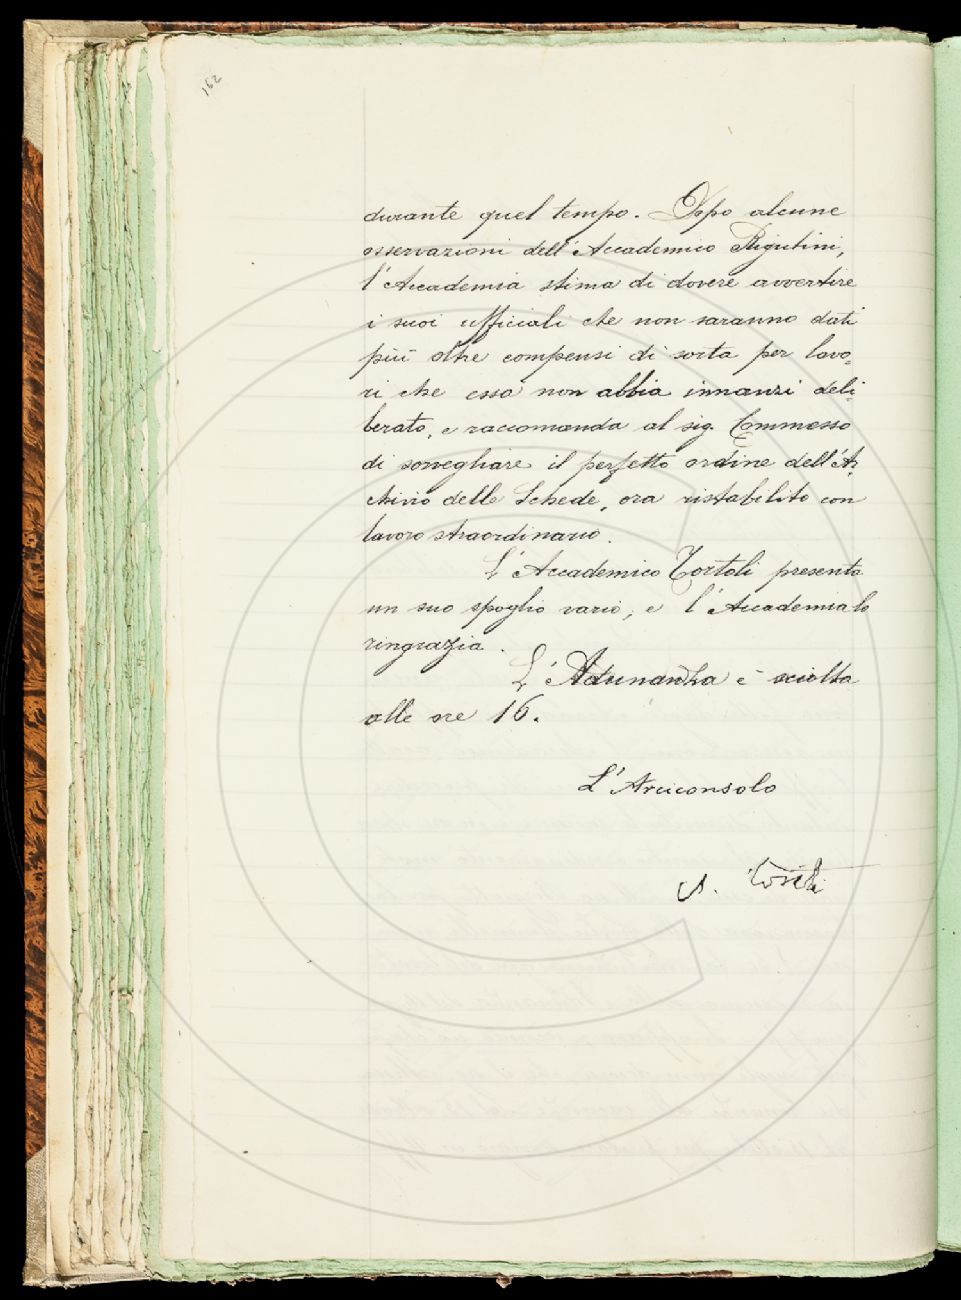 162
durante quel tempo. Dopo alcune
osservazioni dell'Accademico Rigutini,
l'Accademia stima di dovere avvertire
i suoi ufficiali che non saranno dati
più oltre compensi di sorta per lavo-
ri che essa non abbia innanzi deli-
berato, e raccomanda al sig. Commesso
di sorvegliare il perfetto ordine dell'Ar-
chivio delle Schede, ora ristabilito con
lavoro straordinario.
L'Accademico Tortoli presenta
un suo spoglio vario; e l'Accademia lo
ringrazia.
L'Adunanza è sciolta
alle ore 16.
L'Arciconsolo